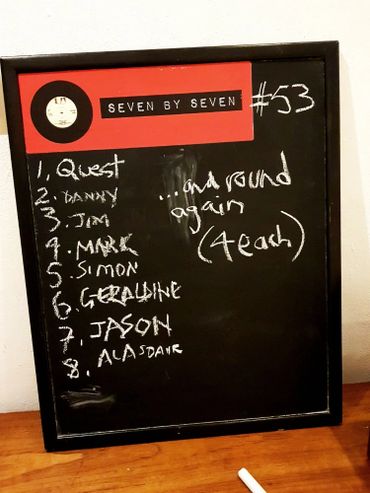 SEVEN BY SEVEN
#53
1. Quest
2. DANNY
3. JIM
4. MARK
5. SIMON
6. GERALDINE
7. JASON
8. ALASDAIR
...and round
again
(4 each)